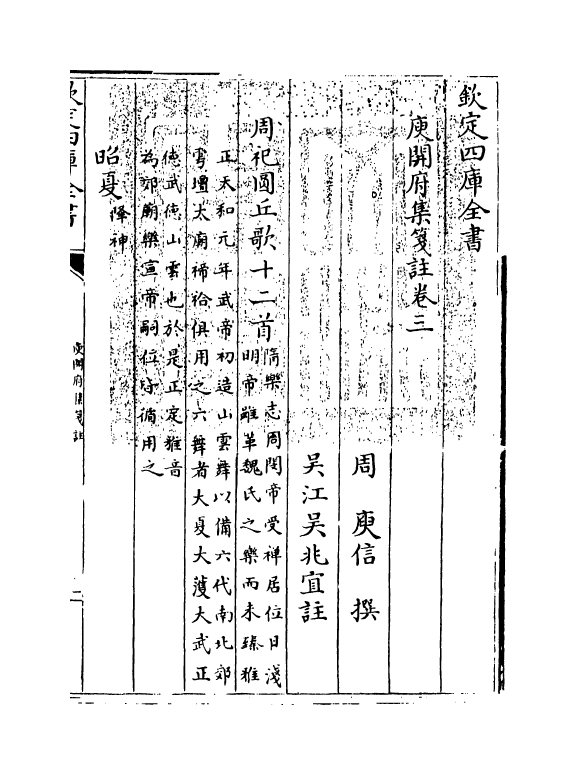 欽定四庫全書
庾開府集箋註卷三
周　庾信　撰
吳江吳兆宜註
周祀圜丘歌十二首
隋樂志周閔帝受禪居位日淺
明帝雖革魏氏之樂而未臻雅
正天和元年武帝初造山雲舞以備六代南北郊
雩壇太廟禘祫俱用之六舞者大夏大濩大武正
德武德山雲也於是正定雅音
為郊廟樂宣帝嗣位守備用之
昭夏降神
欽定四庫全書
庾開府集箋註